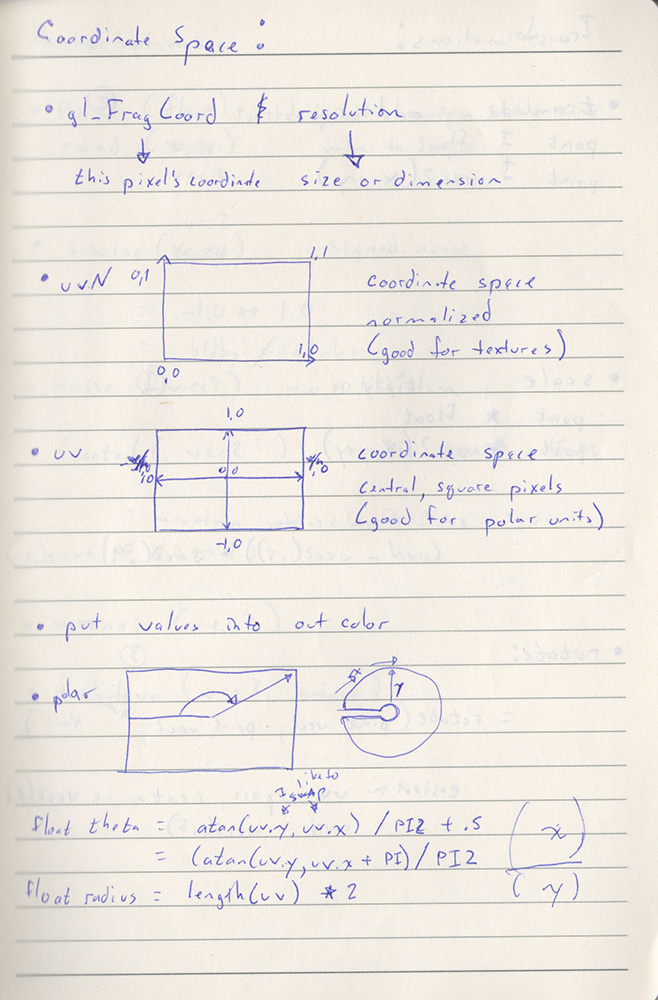 Coordinate Space:
• gl_FragCoord & resolution
this pixel's coordinate size or dimension
• uvN 0,1 1,1 coordinate space
normalized
1,0 (good for textures)
0,0
1,0
• uv 0,0 coordinate space
central, square pixels
(good for polar units)
-1,0
• put values into out color
• polar r
like to
I swap
float theta = atan(uv.y, uv.x) / PI2 + .5 (x)
= (atan(uv.y, uv.x + PI) / PI2
float radius = length(uv) * 2 (y)